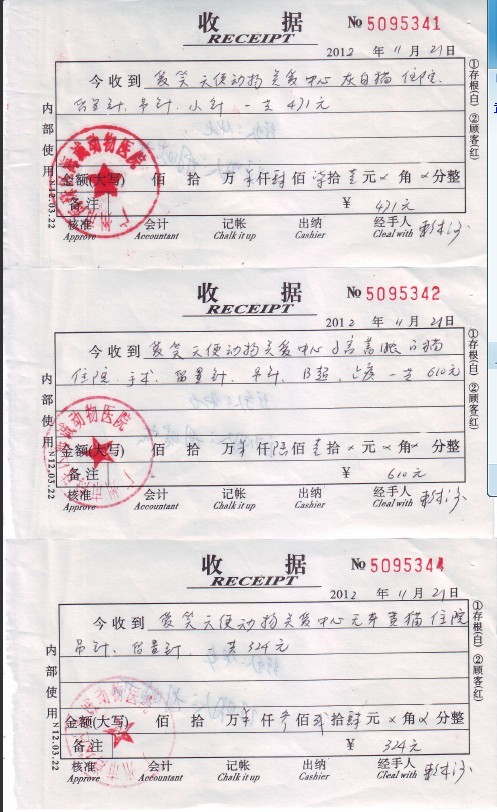 收 据 № 5095341
RECEIPT
2012 年 11 月 21 日
今 收 到 爱笑天使动物关爱中心 灰白猫 住院.
留置针、吊针、小针 一共 471元
金额(大写) 佰 拾 万 仟 肆 佰 柒 拾 壹 元 × 角 × 分整
备 注 ¥ 471元
核准 会计 记帐 出纳 经手人
Approve Accountant Chalk it up Cashier Cleal with
内部使用 N12.03.22
①存根(白) ②顾客(红)
诚动物医院
广州市
收 据 № 5095342
RECEIPT
2012 年 11 月 21 日
今 收 到 爱笑天使动物关爱中心 白猫
住院、手术、留置针、吊针、B超、 一共 610元
金额(大写) 佰 拾 万 仟 陆 佰 壹 拾 × 元 × 角 × 分整
备 注 ¥ 610元
核准 会计 记帐 出纳 经手人
Approve Accountant Chalk it up Cashier Cleal with
内部使用 N12.03.22
①存根(白) ②顾客(红)
诚动物医院
广州市
收 据 № 5095344
RECEIPT
2012 年 11 月 21 日
今 收 到 爱笑天使动物关爱中心 黄猫 住院
吊针、留置针、 一共 324元
金额(大写) 佰 拾 万 仟 叁 佰 贰 拾 肆 元 × 角 × 分整
备 注 ¥ 324元
核准 会计 记帐 出纳 经手人
Approve Accountant Chalk it up Cashier Cleal with
内部使用 N12.03.22
①存根(白) ②顾客(红)
诚动物医院